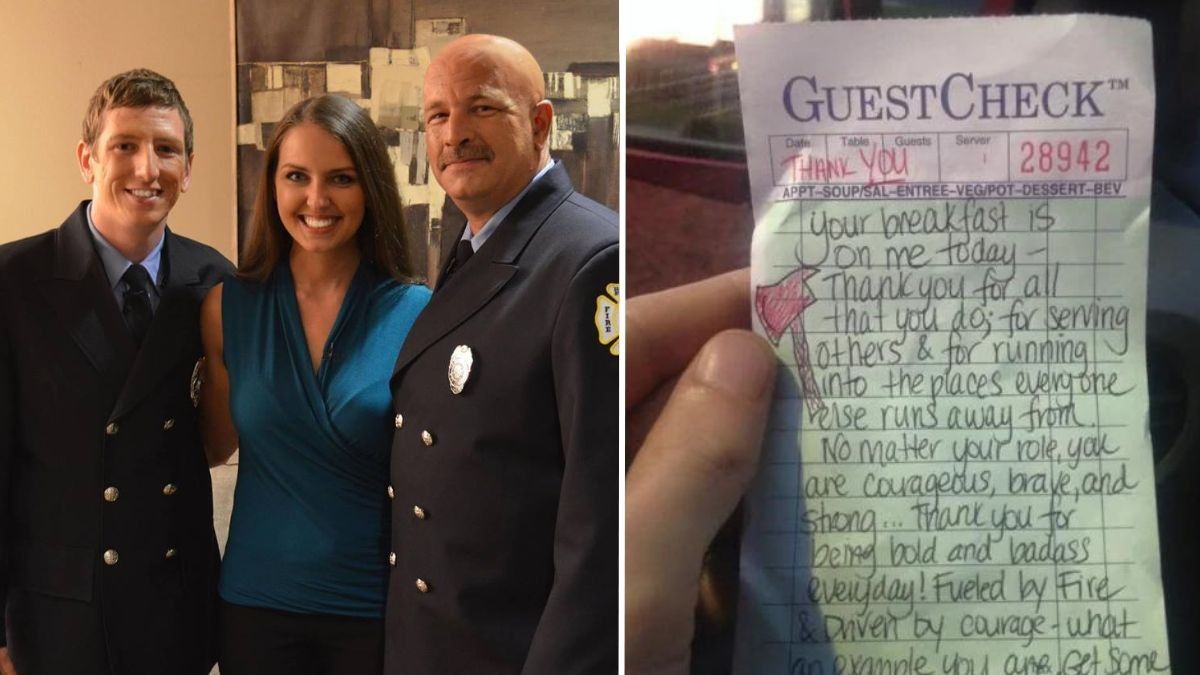 FIRE
GUESTCHECK™
Date Table Guests Server
THANK YOU 28942
APPT–SOUP/SAL–ENTREE–VEG/POT–DESSERT–BEV
Your breakfast is
on me today –
Thank you for all
that you do; for serving
others & for running
into the places everyone
else runs away from.
No matter your role, you
are courageous, brave, and
strong... Thank you for
being bold and badass
everyday! Fueled by Fire
& Driven by courage - what
an example you are. Get Some